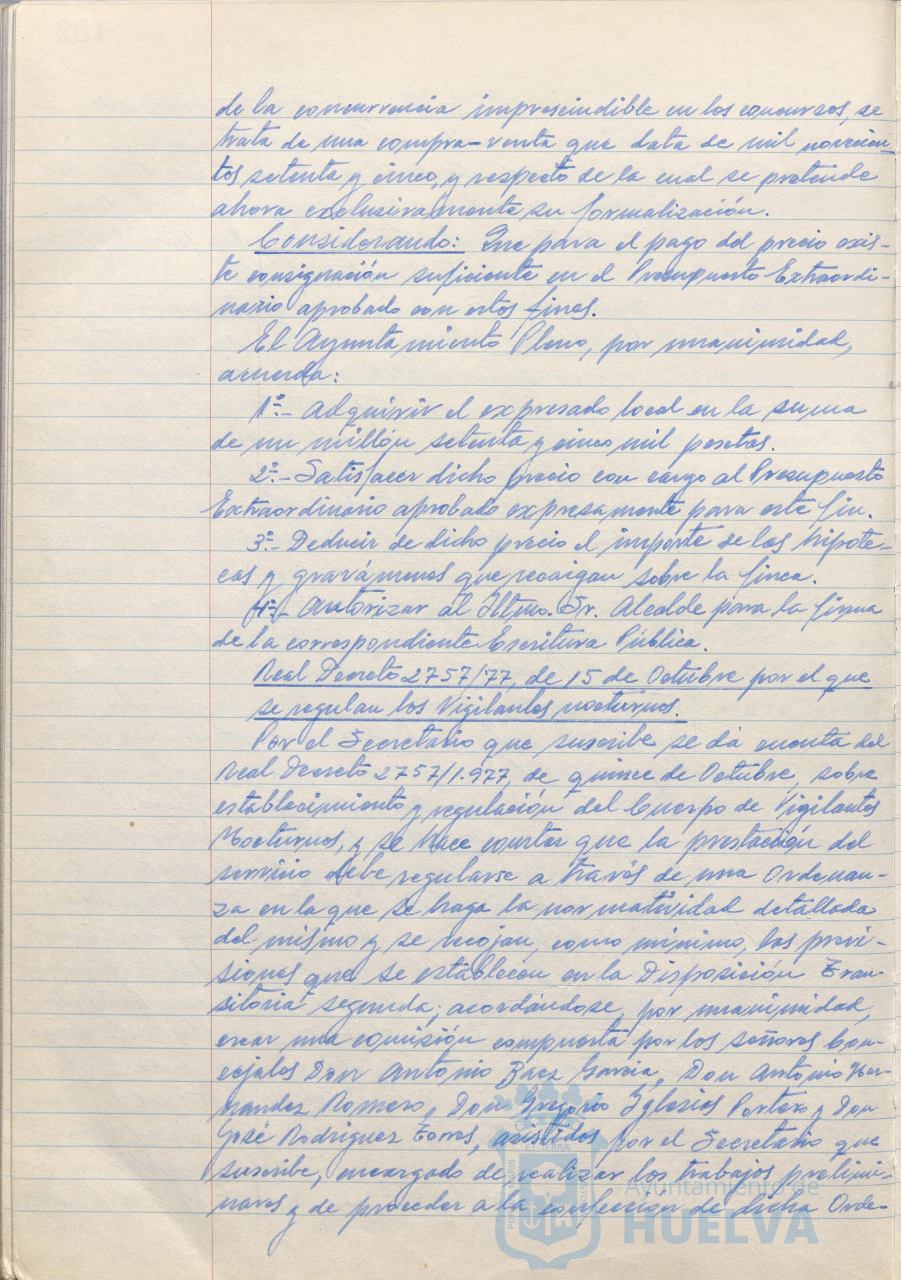 de la concurrencia imprescindible en los concursos, se
trata de una compra-venta que data de mil novecien-
tos setenta y cinco, y respecto de la cual se pretende
ahora exclusivamente su formalización.
Considerando: Que para el pago del precio exis-
te consignación suficiente en el Presupuesto Extraordi-
nario aprobado con estos fines.
El Ayuntamiento Pleno, por unanimidad,
acuerda:
1º.- Adquirir el expresado local en la suma
de un millón setenta y cinco mil pesetas.
2º.- Satisfacer dicho precio con cargo al Presupuesto
Extraordinario aprobado expresamente para este fin.
3º.- Deducir de dicho precio el importe de las hipote-
cas y gravámenes que recaigan sobre la finca.
4º.- Autorizar al Iltmo. Sr. Alcalde para la firma
de la correspondiente Escritura Pública.
Real Decreto 2757/77, de 15 de Octubre por el que
se regulan los Vigilantes nocturnos.
Por el Secretario que suscribe se da cuenta del
Real Decreto 2757/1.977, de quince de Octubre, sobre
establecimiento y regulación del Cuerpo de Vigilantes
Nocturnos, y se hace constar que la prestación del
servicio debe regularse a través de una Ordenan-
za en la que se haga la normatividad detallada
del mismo y se recojan, como mínimo, las previ-
siones que se establecen en la Disposición Tran-
sitoria segunda; acordándose, por unanimidad,
crear una comisión compuesta por los señores Con-
cejales Don Antonio Baez Garcia, Don Antonio Her-
nandez Romero, Don Gregorio Iglesias Portero y Don
José Rodriguez Torres, asistidos por el Secretario que
suscribe, encargado de realizar los trabajos prelimi-
nares y de proceder a la confección de dicha Orde-
Ayuntamiento de
HUELVA